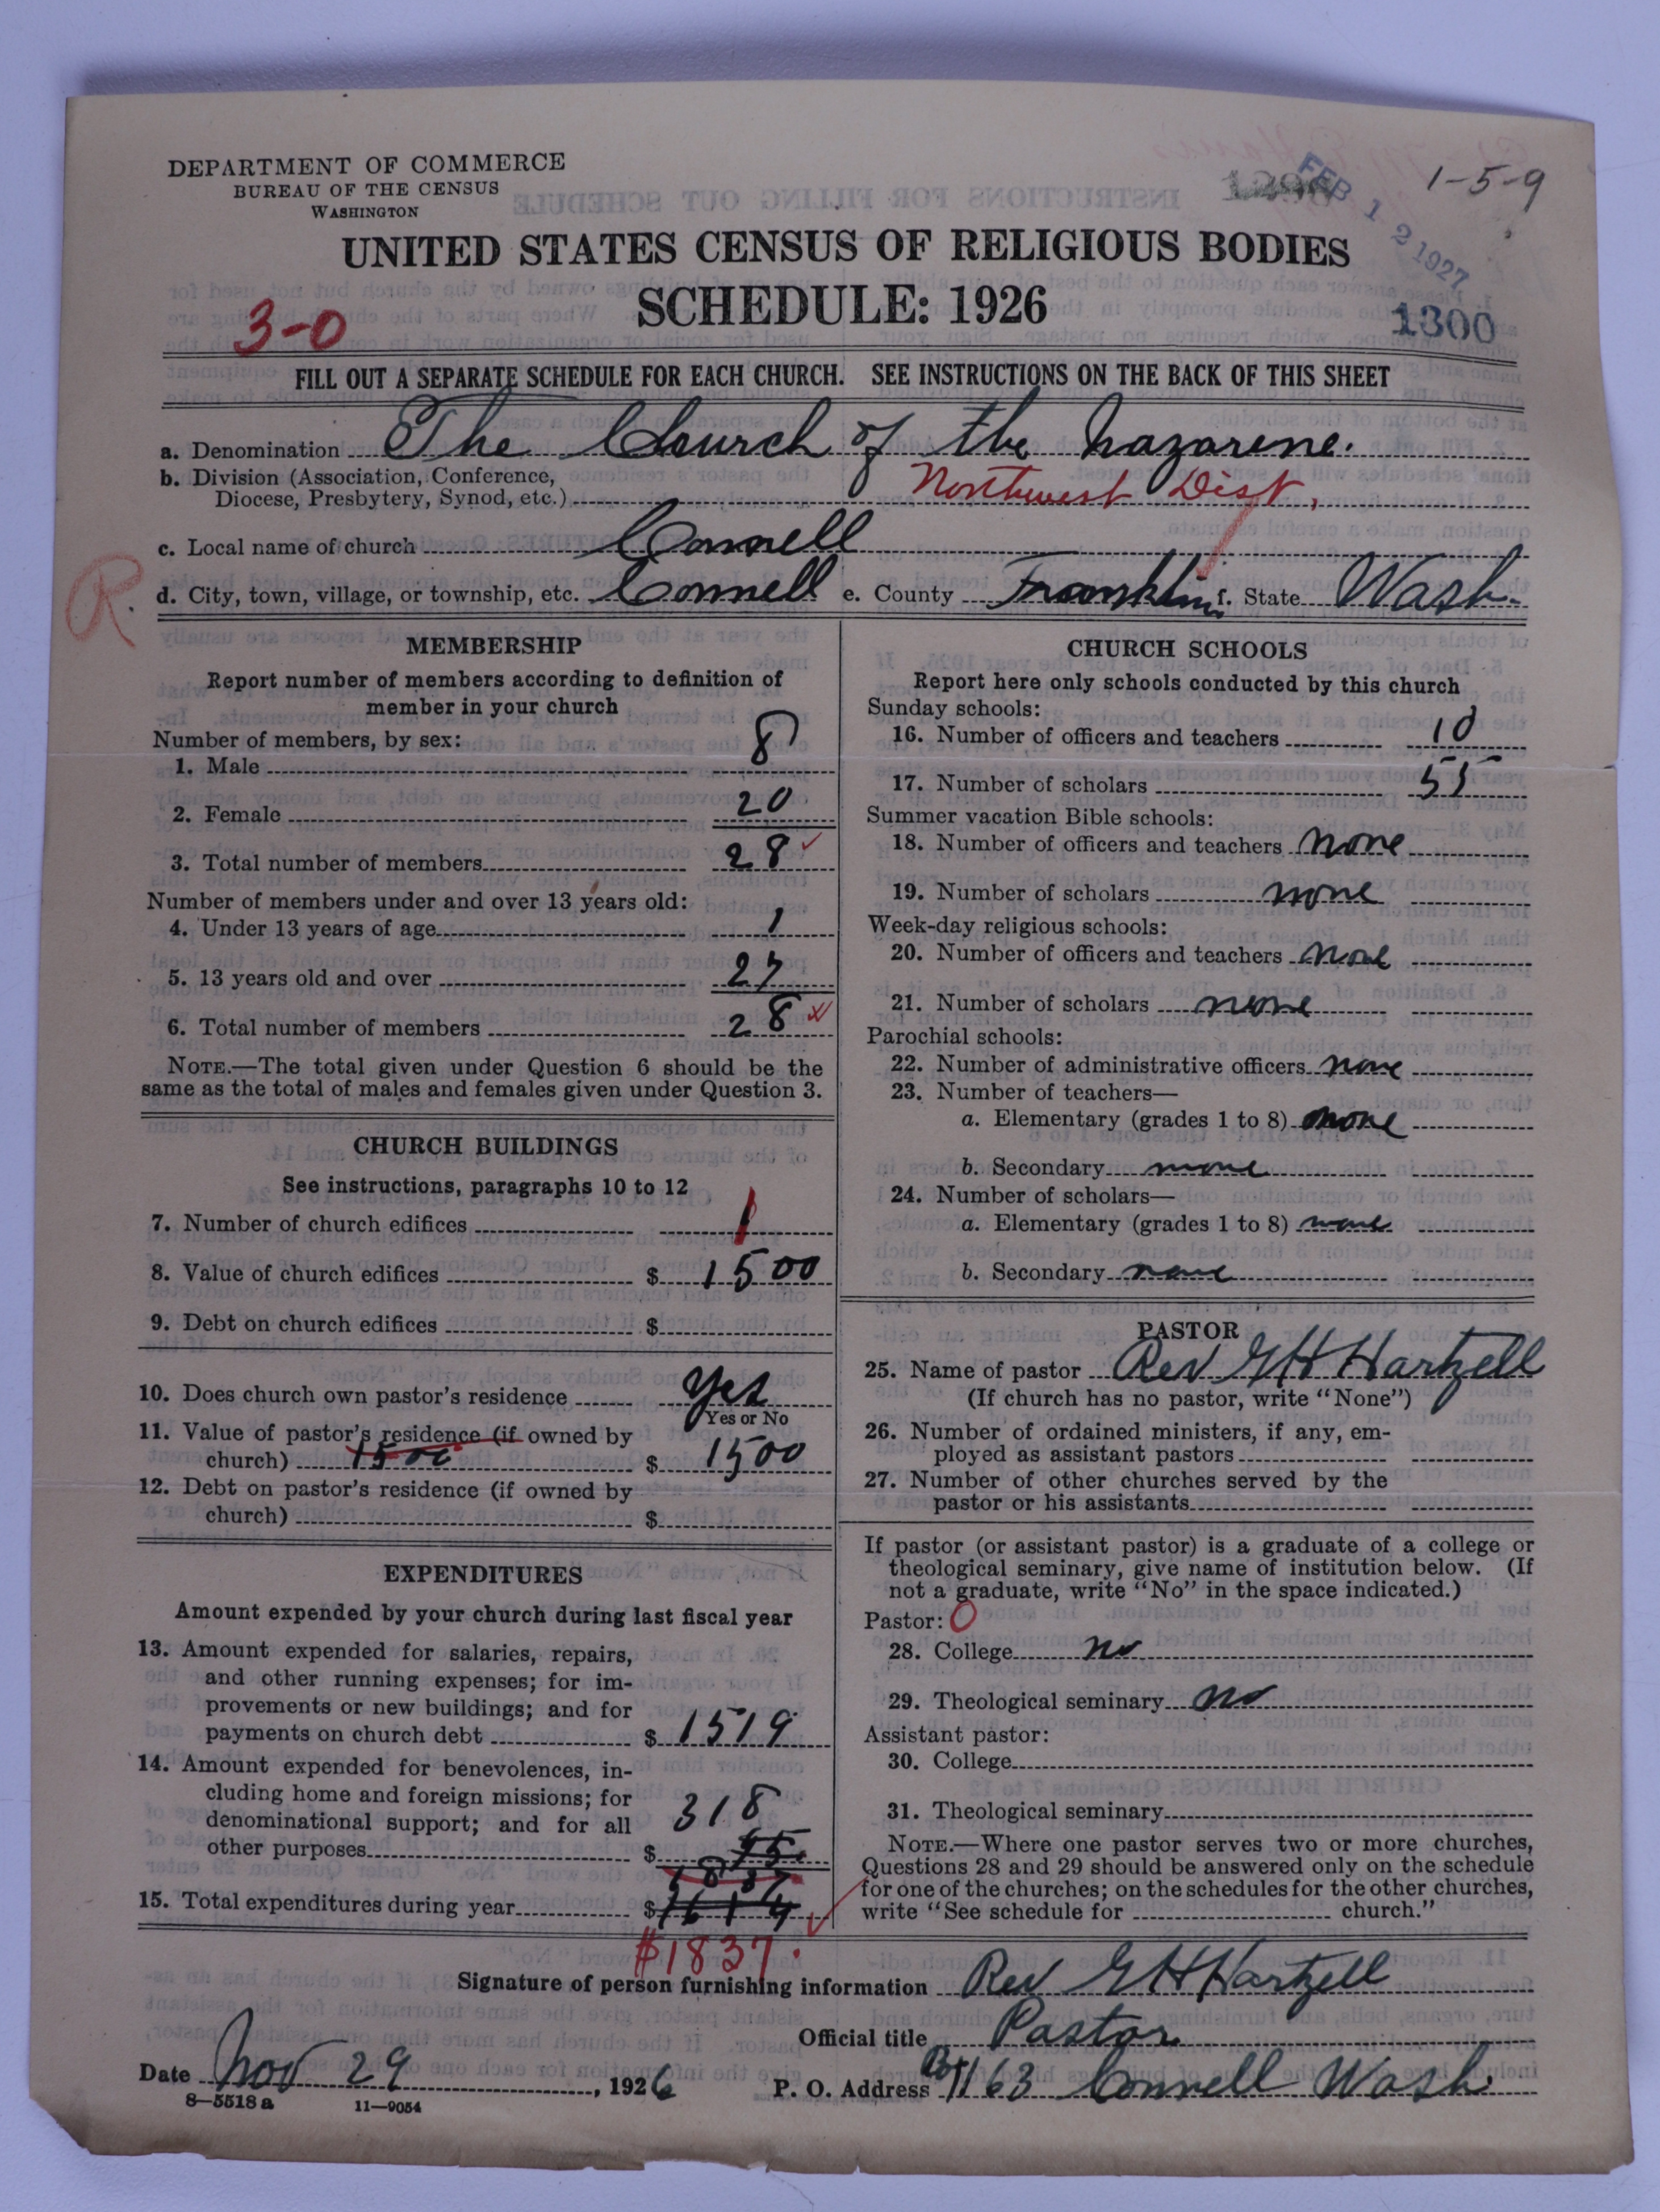 DEPARTMENT OF COMMERCE
BUREAU OF THE CENSUS
WASHINGTON
FEB 12 1927
1-5-9
UNITED STATES CENSUS OF RELIGIOUS BODIES
SCHEDULE: 1926
3-0
1300
FILL OUT A SEPARATE SCHEDULE FOR EACH CHURCH. SEE INSTRUCTIONS ON THE BACK OF THIS SHEET
a. Denomination The Church of the Nazarene.
b. Division (Association, Conference,
Diocese, Presbytery, Synod, etc.) Northwest Dist.
c. Local name of church Connell
R. d. City, town, village, or township, etc. Connell e. County Franklin f. State Wash.
MEMBERSHIP
Report number of members according to definition of
member in your church
Number of members, by sex:
1. Male 8
2. Female 20
3. Total number of members 28
Number of members under and over 13 years old:
4. Under 13 years of age 1
5. 13 years old and over 27
6. Total number of members 28
NOTE.—The total given under Question 6 should be the
same as the total of males and females given under Question 3.
CHURCH BUILDINGS
See instructions, paragraphs 10 to 12
7. Number of church edifices 1
8. Value of church edifices $ 1500
9. Debt on church edifices $
10. Does church own pastor's residence Yes
Yes or No
11. Value of pastor's residence (if owned by
church) 1500 $ 1500
12. Debt on pastor's residence (if owned by
church) $
EXPENDITURES
Amount expended by your church during last fiscal year
13. Amount expended for salaries, repairs,
and other running expenses; for im-
provements or new buildings; and for
payments on church debt $ 1519
14. Amount expended for benevolences, in-
cluding home and foreign missions; for
denominational support; and for all 318
other purposes $
1837
15. Total expenditures during year $ 1614
$1837.
CHURCH SCHOOLS
Report here only schools conducted by this church
Sunday schools:
16. Number of officers and teachers 10
17. Number of scholars 55
Summer vacation Bible schools:
18. Number of officers and teachers none
19. Number of scholars none
Week-day religious schools:
20. Number of officers and teachers none
21. Number of scholars none
Parochial schools:
22. Number of administrative officers none
23. Number of teachers—
a. Elementary (grades 1 to 8) none
b. Secondary none
24. Number of scholars—
a. Elementary (grades 1 to 8) none
b. Secondary none
PASTOR
25. Name of pastor Rev G H Hartzell
(If church has no pastor, write "None")
26. Number of ordained ministers, if any, em-
ployed as assistant pastors
27. Number of other churches served by the
pastor or his assistants
If pastor (or assistant pastor) is a graduate of a college or
theological seminary, give name of institution below. (If
not a graduate, write "No" in the space indicated.)
Pastor: 0
28. College no
29. Theological seminary no
Assistant pastor:
30. College
31. Theological seminary
NOTE.—Where one pastor serves two or more churches,
Questions 28 and 29 should be answered only on the schedule
for one of the churches; on the schedules for the other churches,
write "See schedule for church."
Signature of person furnishing information Rev G H Hartzell
Official title Pastor
Date Nov 29, 1926 P. O. Address Box 163 Connell Wash.
8—5518 a 11—9054